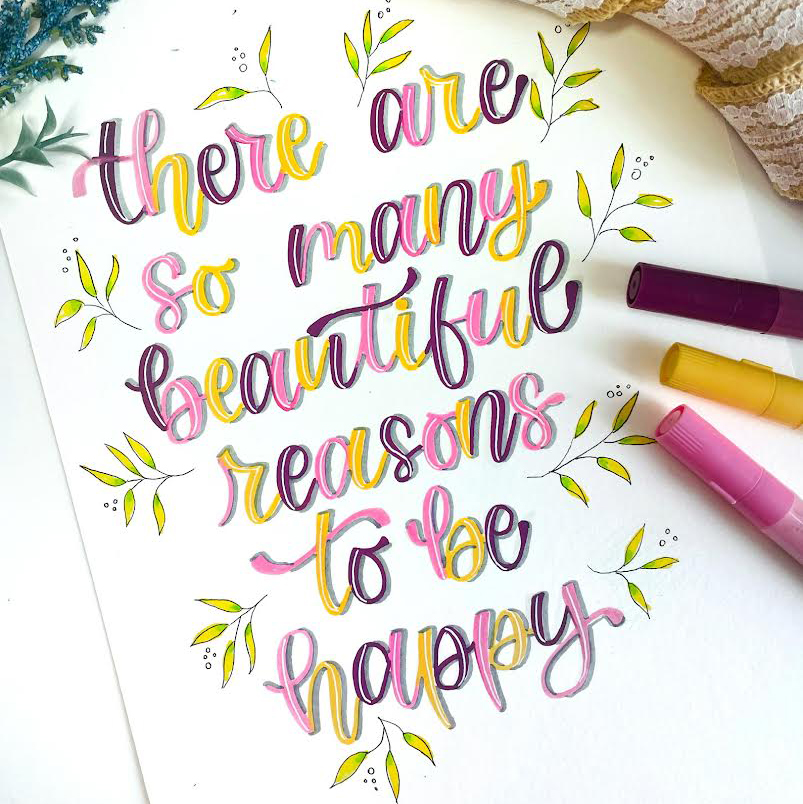 there are
so many
beautiful
reasons
to be
happy